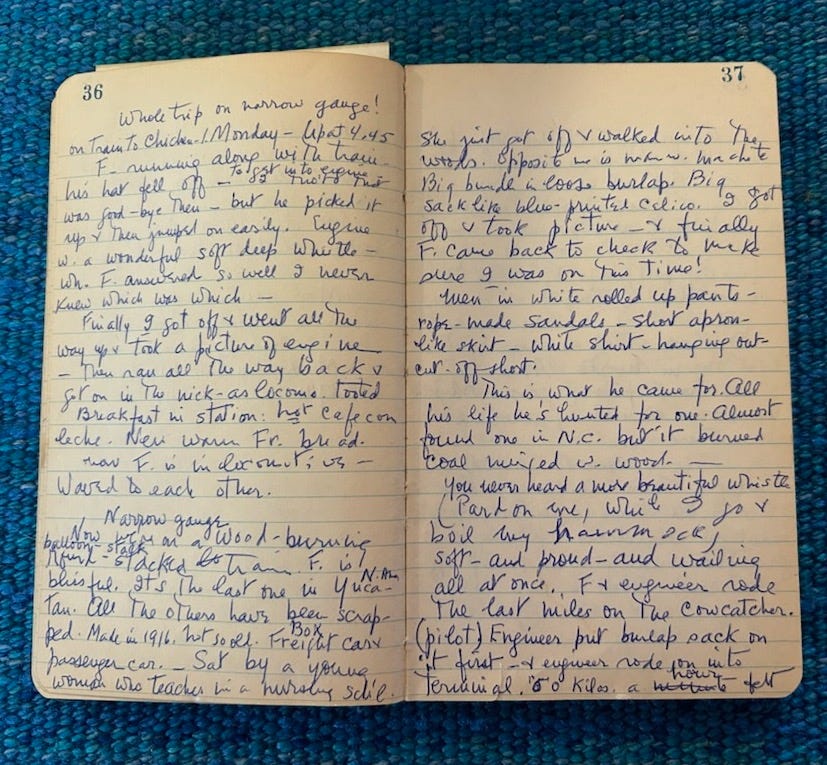 36
Whole trip on narrow gauge!
on Train To Chichen-! Monday - Up at 4.45
F. running along with train -
his hat fell off - to get into engine
was good-bye then - but he picked it
up & Then jumped on easily. Engine
w. a wonderful soft deep whistle -
wh. F. answered so well I never
knew which was which -
Finally I got off & went all The
way up & Took a picture of engine
- Then ran all The way back &
got on in The nick - as locomo. Tooted
Breakfast in station: hot cafe con
leche. New warm Fr. bread.
now F. is in locomotive -
Waved to each other.
Narrow gauge
Now on a wood-burning
balloon-stack
stacked train F. is
blissful. It's The last one in Yuca-
N. Am
tan. All The others have been scrap-
ped. Made in 1916. not so old. Freight car &
Box
passenger car. - Sat by a young
woman who teaches in a nursing sch'l.
37
She just got off & walked into The
woods. Opposite me is man w. machete
Big bundle in loose burlap. Big
sack like blue-printed calico. I got
off & took picture - & finally
F. came back to check to make
sure I was on This Time!
Men in white rolled up pants -
rope-made sandals - short apron-
like skirt - white shirt - hanging out-
cut-off-short.
This is what he came for. All
his life he's hunted for one. Almost
found one in N.C. but it burned
coal mixed w. wood. -
You never heard a more beautiful whistle
(Pardon me, while I go &
boil my hammock)
soft - and proud - and wailing
all at once. F & engineer rode
The last miles on The Cowcatcher.
(pilot) Engineer put burlap sack on
it first - & engineer rode on into
Terminal. 50 Kilos. a hour felt